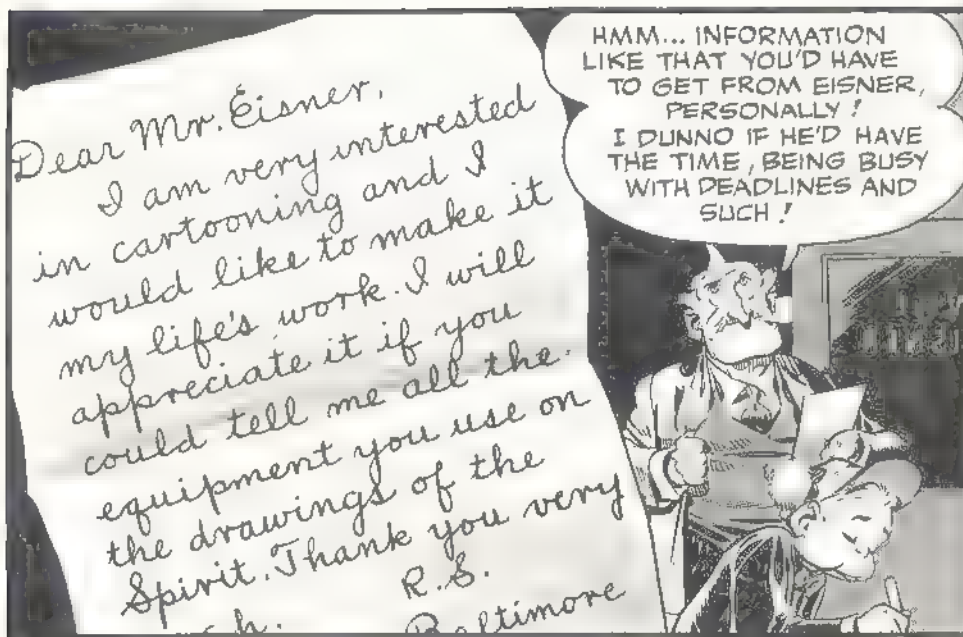 Dear Mr. Eisner,
I am very interested
in cartooning and I
would like to make it
my life's work. I will
appreciate it if you
could tell me all the
equipment you use on
the drawings of the
Spirit. Thank you very
R.S.
Baltimore
HMM... INFORMATION
LIKE THAT YOU'D HAVE
TO GET FROM EISNER,
PERSONALLY!
I DUNNO IF HE'D HAVE
THE TIME, BEING BUSY
WITH DEADLINES AND
SUCH!